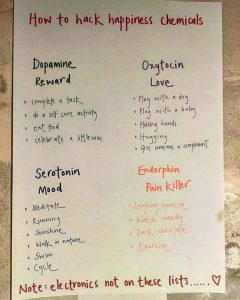 How to hack happiness chemicals
Dopamine
Reward
• complete a task
• do a self care activity
• eat food
• celebrate a little win
Oxytocin
Love
• Play with a dog
• Play with a baby
• Holding hands
• Hugging
• Give someone a compliment
Serotonin
Mood
• Meditate
• Running
• Sunshine
• Walk in nature
• Swim
• Cycle
Endorphin
Pain Killer
• Laughing exercise
• Watch comedy
• Dark chocolate
• Exercise
Note: electronics not on these lists..... ♡